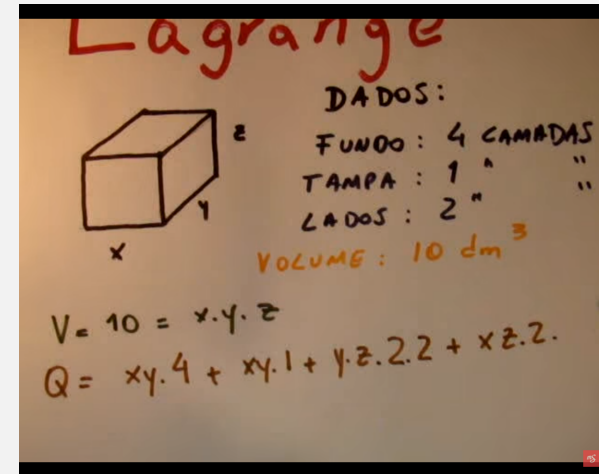 Lagrange
DADOS:
FUNDO : 4 CAMADAS
TAMPA : 1 " "
LADOS : 2 " "
VOLUME : 10 dm³
z
y
x
V = 10 = x.y.z
Q = xy.4 + xy.1 + y.z.2.2 + xz.2.